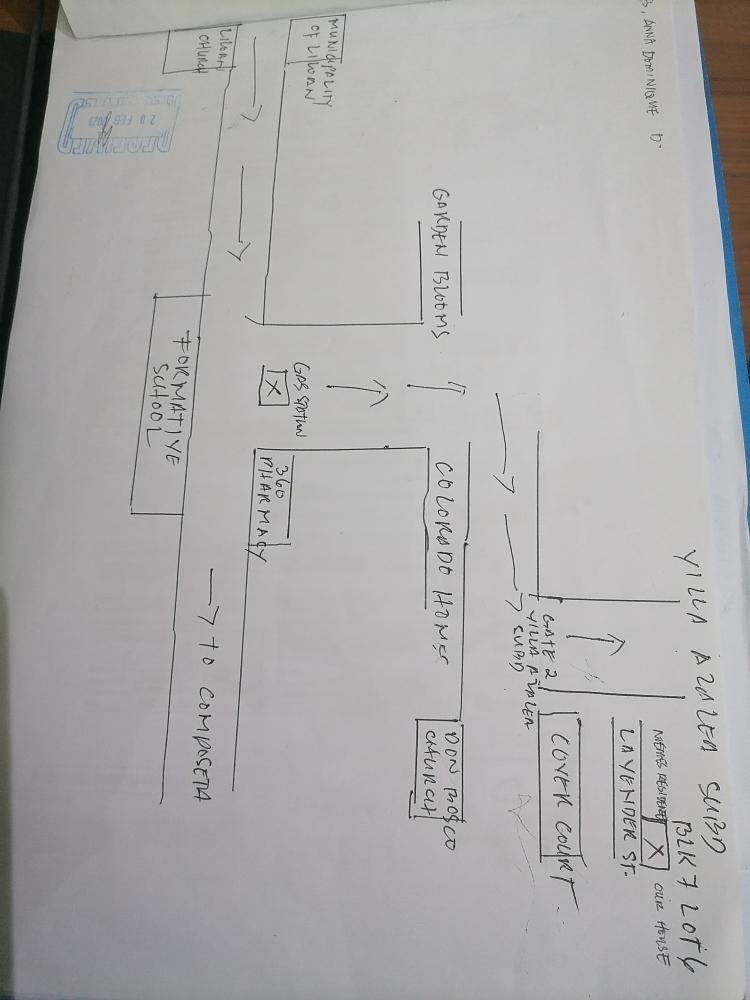 , ANNA DOMINIQUE D.
VILLA AZALEA SUBD
BLK 7 LOT 6
X
OUR HOUSE
LAVENDER ST.
COVER COURT
GATE 2
VILLA AZALEA
SUBD
DON BOSCO
CHURCH
COLORADO HOMES
GARDEN BLOOMS
GAS STATION
X
360
PHARMACY
MUNICIPALITY
OF LILOAN
LILOAN
CHURCH
FORMATIVE
SCHOOL
TO COMPOSTELA
RECEIVED
20 FEB 2023